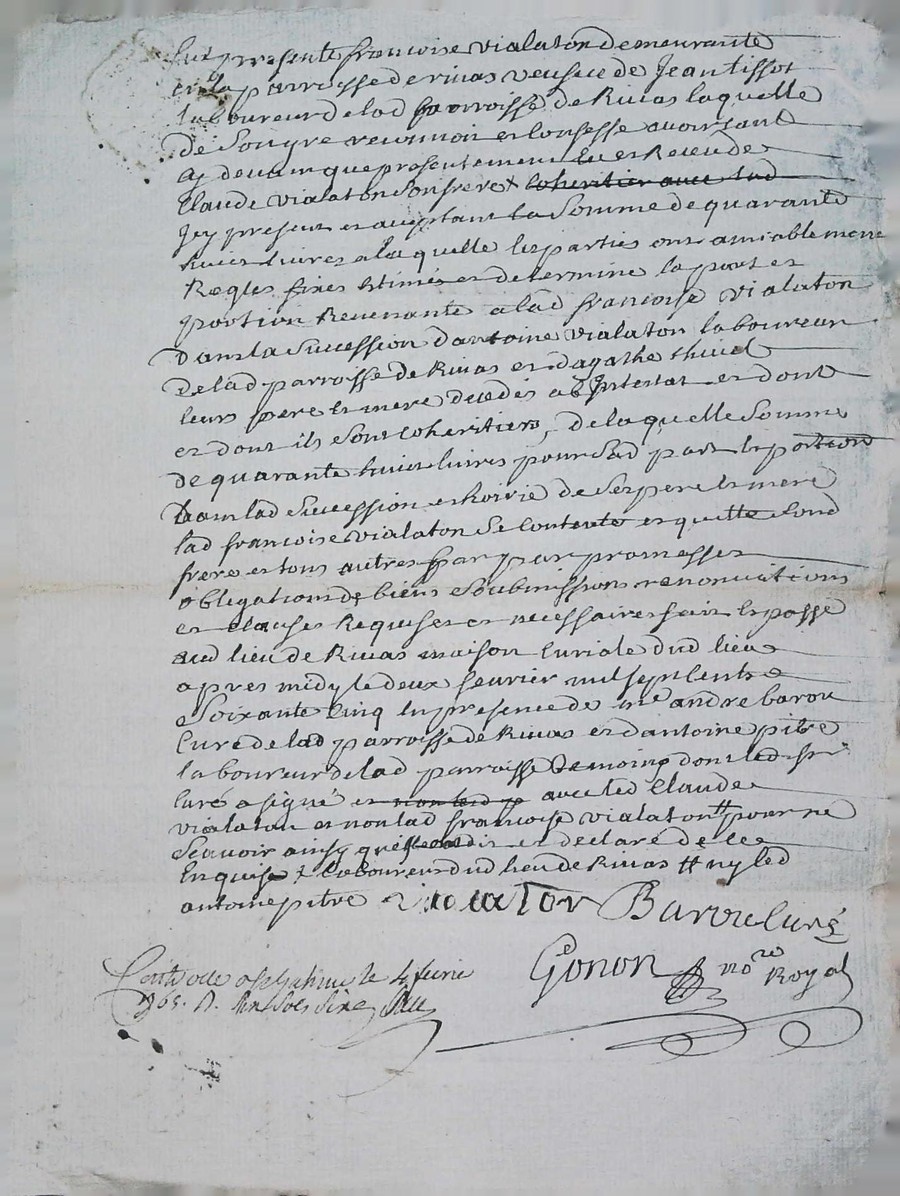 fut presente francoise vialaton demeurante
en la parroisse de rivas veufve de Jean tissot
laboureur de lad parroisse de Rivas laquelle
de son gre reconnoit et confesse avoir tant
cy devant que presentement eu et Receu de
Claude vialaton son frere x coheritier avec lad
icy present et acceptant la somme de quarante
huict livres a laquelle les parties ont amiablement
Regles fixes estimés et determine la part et
portion Revenante a lad francoise vialaton
dans la succession d'antoine vialaton laboureur
de lad parroisse de Rivas et d'agathe
leurs pere et mere decedes ab Intestat et dont
et dont ils sont coheritiers, de laquelle somme
de quarante huict livres pour sad part et portion
dans lad succession et hoirie de ses pere et mere
lad francoise vialaton se contente et quitte sond
frere et tous autres par promesses
obligations de biens soubmissions renonciations
et clauses Requises et necessaires fait et passé
aud lieu de Rivas maison Curiale dud lieu
apres midy le deux fevrier mil sept cents
soixante cinq en presence de me andre barou
Curé de lad parroisse de Rivas et d'antoine pitre
laboureur de lad parroisse temoins dont led sr
curé a signé et non led avec led Claude
vialaton et non lad francoise vialaton # pour ne
scavoir ainsy qu'elle a dit et declaré de ce
Enquise x laboureur dud lieu de Rivas # ny led
antoine pitre vialaton Barou curé
Gonon nore Royal
Controllé a st Galmier le 4 fevrier
1765. R.